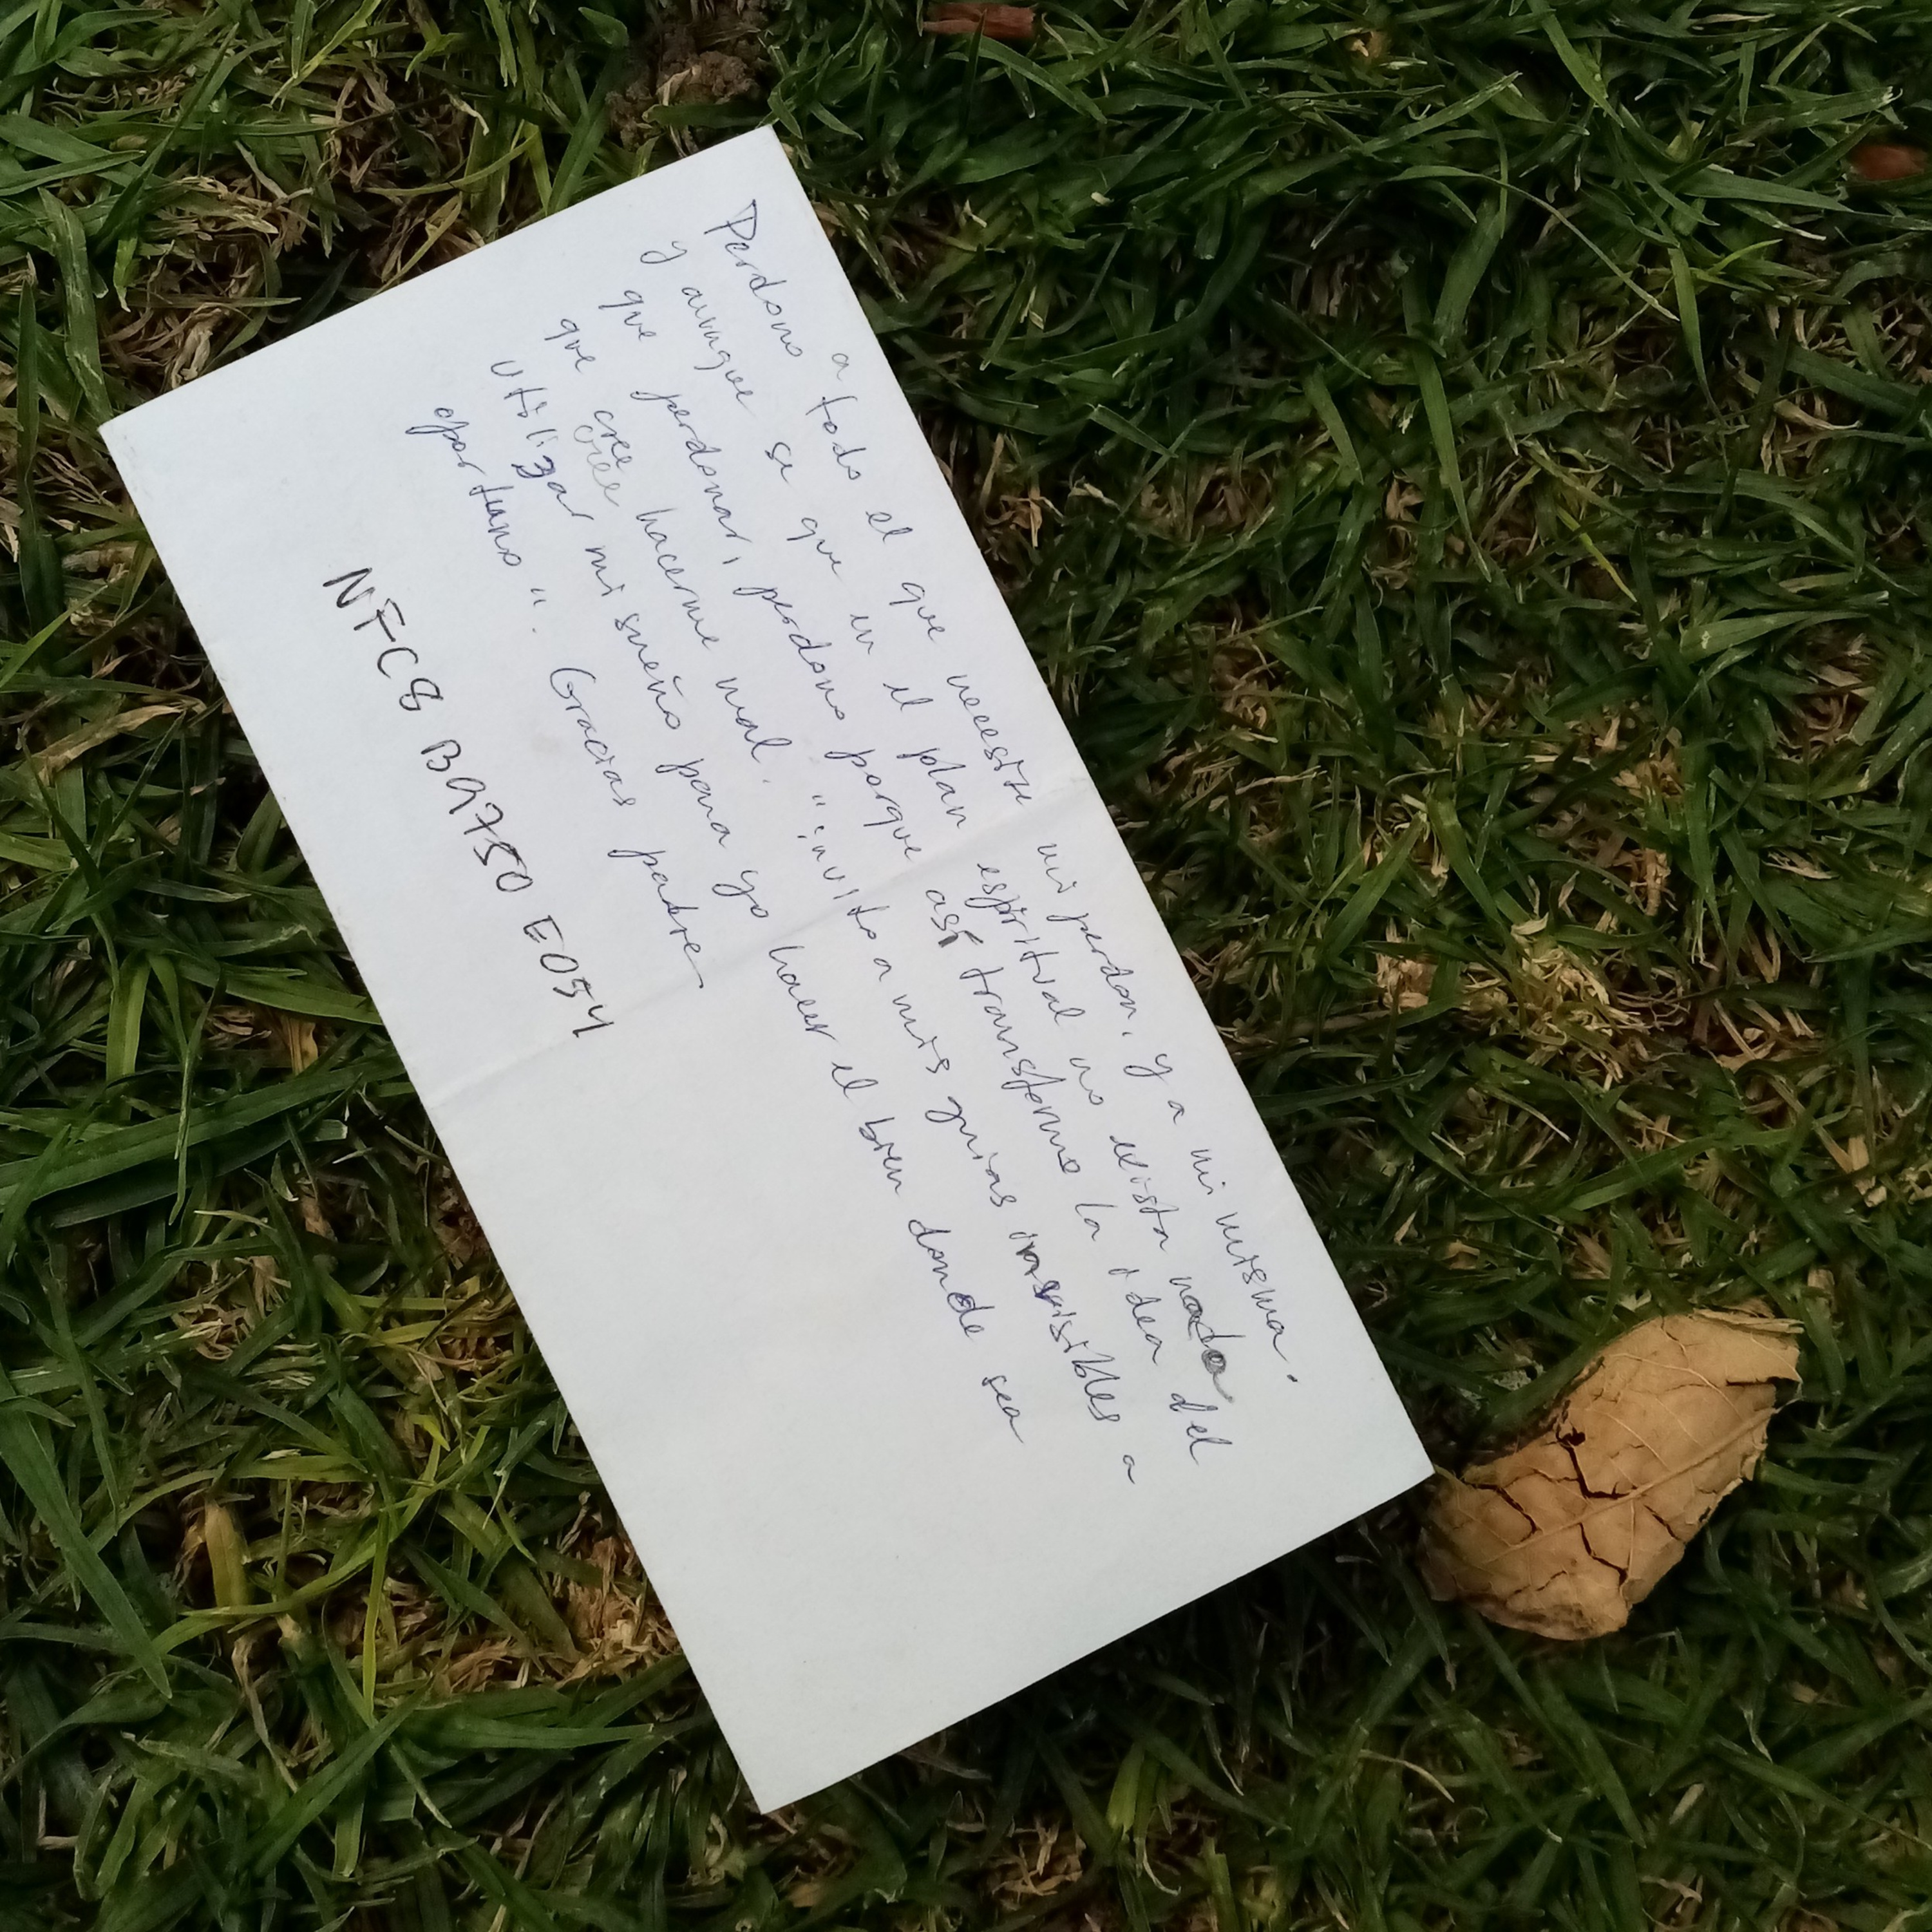 Perdono a todo el que necesite mi perdon, y a mi misma.
y aunque se que en el plan espiritual no exista nada
que perdonar, perdono porque así transformo la idea del
que cree hacerme mal. "invito a mis guias invisibles a
utilizar mi sueño para yo hacer el bien donde sea
oportuno". Gracias padre
NFC8 B9750 E054